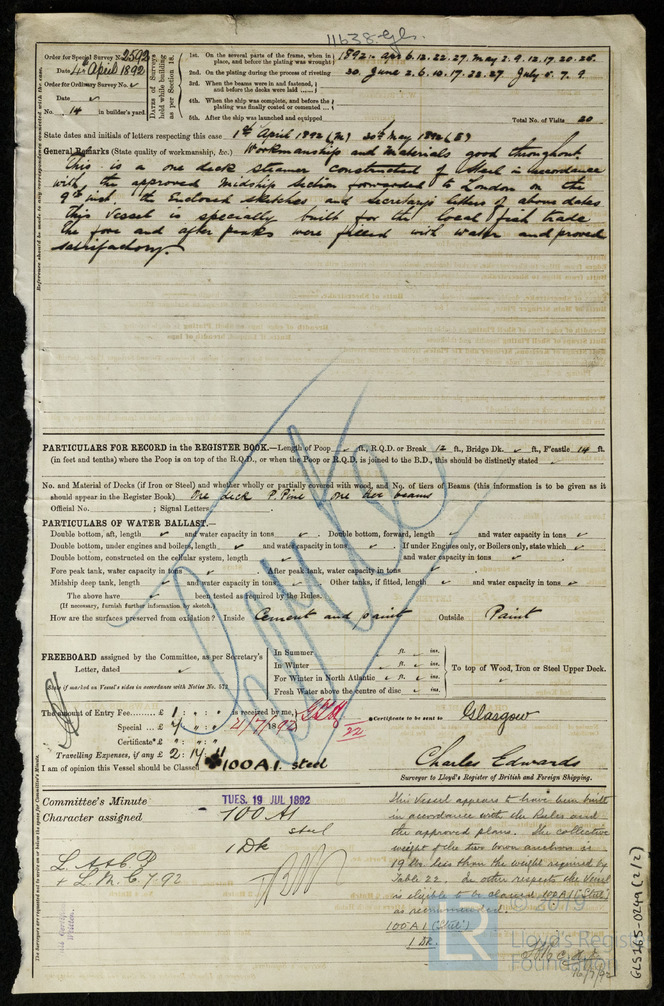 11638 Gls.
Order for Special Survey No. 2592
Date 4th April 1892
Order for Ordinary Survey No. ✓
Date ✓
No. 14 in builder's yard.
Dates of Surveys held while building as per Section 18.
1st. On the several parts of the frame, when in place, and before the plating was wrought 1892. apr 6. 12. 22. 27. may 2. 9. 12. 17. 20. 25.
2nd. On the plating during the process of riveting 30. June 2. 6. 10. 17. 22. 27. July 5. 7. 9.
3rd. When the beams were in and fastened, and before the decks were laid
4th. When the ship was complete, and before the plating was finally coated or cemented
5th. After the ship was launched and equipped
Total No. of Visits 20
State dates and initials of letters respecting this case 1st April 1892 (M) 30th May 1892 (E)
General Remarks (State quality of workmanship, &c.) Workmanship and Materials good throughout.
This is a one deck steamer constructed of Steel in accordance
with the approved Midship Section forwarded to London on the
9th inst. the Enclosed sketches and secretarys letters of above dates
this vessel is specially built for the local fish trade
the fore and after peaks were filled with water and proved
satisfactory.
PARTICULARS FOR RECORD in the REGISTER BOOK.—Length of Poop ✓ ft., R.Q.D. or Break 12 ft., Bridge Dk. ✓ ft., F'castle 14 ft.
(in feet and tenths) where the Poop is on top of the R.Q.D., or when the Poop or R.Q.D. is joined to the B.D., this should be distinctly stated
No. and Material of Decks (if Iron or Steel) and whether wholly or partially covered with wood, and No. of tiers of Beams (this information is to be given as it
should appear in the Register Book) One deck P. Pine one tier beams
Official No. ; Signal Letters
PARTICULARS OF WATER BALLAST.—
Double bottom, aft, length ✓ and water capacity in tons ✓ . Double bottom, forward, length ✓ and water capacity in tons ✓
Double bottom, under engines and boilers, length ✓ and water capacity in tons ✓ . If under Engines only, or Boilers only, state which ✓
Double bottom, constructed on the cellular system, length ✓ and water capacity in tons ✓
Fore peak tank, water capacity in tons ✓ After peak tank, water capacity in tons ✓
Midship deep tank, length ✓ and water capacity in tons ✓ Other tanks, if fitted, length ✓ and water capacity in tons ✓
The above have ✓ been tested as required by the Rules.
(If necessary, furnish further information by sketch.)
How are the surfaces preserved from oxidation? Inside Cement and paint Outside Paint
FREEBOARD assigned by the Committee, as per Secretary's Letter, dated
(State if marked on Vessel's sides in accordance with Notice No. 57)
In Summer ✓ ft. ✓ ins.
In Winter ✓ ft. ✓ ins.
For Winter in North Atlantic ✓ ft. ✓ ins.
Fresh Water above the centre of disc ✓ ft. ✓ ins.
To top of Wood, Iron or Steel Upper Deck.
The amount of Entry Fee £ 1 : " : " is received by me,
Special £ 4 : " : " 21/7/1892
Certificate £ " : " : "
22
Certificate to be sent to Glasgow
Travelling Expenses, if any £ 2 : 14 : 11
I am of opinion this Vessel should be Classed 100 A1. steel
Charles Edwards
Surveyor to Lloyd's Register of British and Foreign Shipping.
Committee's Minute TUES. 19 JUL 1892
Character assigned 100 A1
steel
1 Dk
L. A & C P
+ L. M. C. 7. 92
This Vessel appears to have been built
in accordance with the Rules and
the approved plans. The collective
weight of the two bower anchors is
19 lbs. less than the weight required by
Table 22. In other respects the Vessel
is eligible to be classed 100A1 (Steel)
as recommended.
100A1 (Steel)
1 DK.
16/7/92
© 2019
LR Lloyd's Register
Foundation
GLS165-0249 (2/2)